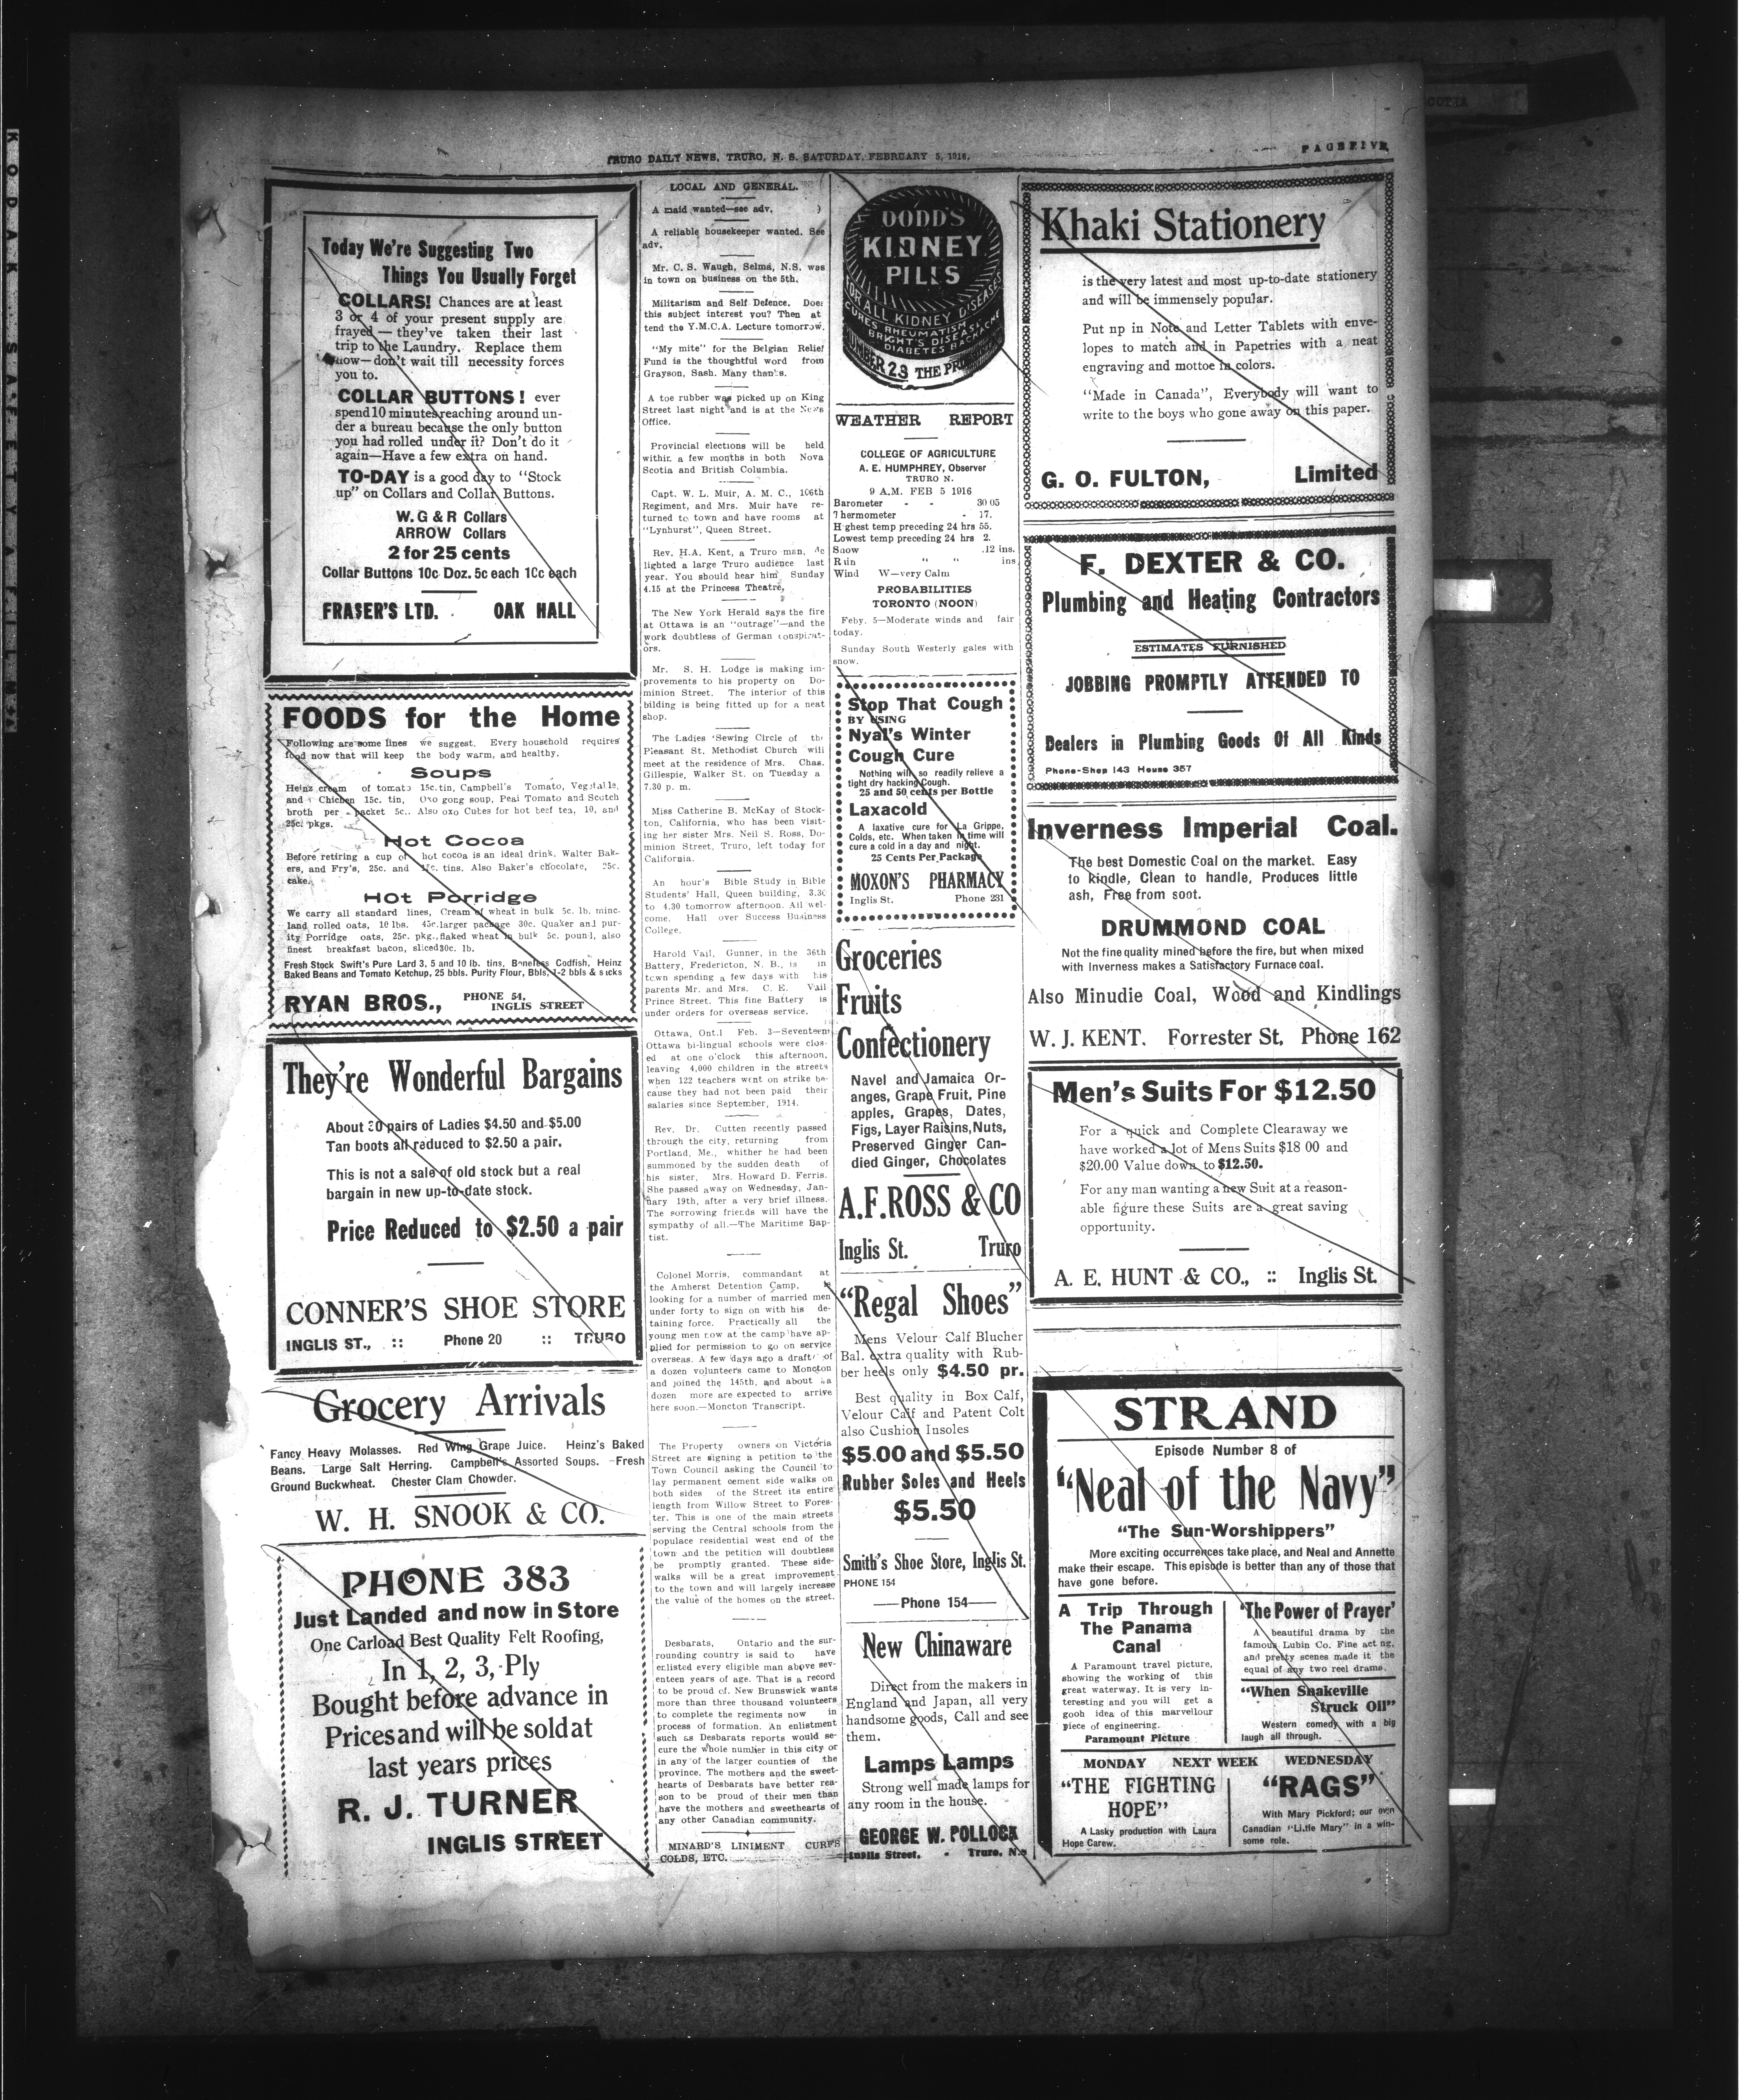 TRURO DAILY NEWS, TRURO, N. S. SATURDAY, FEBRUARY 5, 1916.
PAGE FIVE
Today We're Suggesting Two
Things You Usually Forget
COLLARS! Chances are at least
3 or 4 of your present supply are
frayed — they've taken their last
trip to the Laundry. Replace them
now—don't wait till necessity forces
you to.
COLLAR BUTTONS! ever
spend 10 minutes reaching around un-
der a bureau because the only button
you had rolled under it? Don't do it
again—Have a few extra on hand.
TO-DAY is a good day to "Stock
up" on Collars and Collar Buttons.
W. G & R Collars
ARROW Collars
2 for 25 cents
Collar Buttons 10c Doz. 5c each 10c each
FRASER'S LTD. OAK HALL
FOODS for the Home
Following are some lines we suggest. Every household requires
food now that will keep the body warm, and healthy.
Soups
Heinz cream of tomato 15c. tin, Campbell's Tomato, Vegetable,
and Chicken 15c. tin, Oxo gong soup, Peal Tomato and Scotch
broth per packet 5c.. Also oxo Cubes for hot beef tea, 10, and
25c. pkgs.
Hot Cocoa
Before retiring a cup of hot cocoa is an ideal drink. Walter Bak-
ers, and Fry's, 25c. and 15c. tins. Also Baker's chocolate, 25c.
cake.
Hot Porridge
We carry all standard lines, Cream of wheat in bulk 5c. lb. minc-
land rolled oats, 10 lbs. 45c. larger package 30c. Quaker and pur-
ity Porridge oats, 25c. pkg., flaked wheat in bulk 5c. pound, also
finest breakfast bacon, sliced 30c. lb.
Fresh Stock Swift's Pure Lard 3, 5 and 10 lb. tins, Boneless Codfish, Heinz
Baked Beans and Tomato Ketchup, 25 bbls. Purity Flour, Bbls, 1-2 bbls & sacks
RYAN BROS., PHONE 54,
INGLIS STREET
They're Wonderful Bargains
About 30 pairs of Ladies $4.50 and $5.00
Tan boots all reduced to $2.50 a pair.
This is not a sale of old stock but a real
bargain in new up-to-date stock.
Price Reduced to $2.50 a pair
CONNER'S SHOE STORE
INGLIS ST., :: Phone 20 :: TRURO
Grocery Arrivals
Fancy Heavy Molasses. Red Wing Grape Juice. Heinz's Baked
Beans. Large Salt Herring. Campbell's Assorted Soups. Fresh
Ground Buckwheat. Chester Clam Chowder.
W. H. SNOOK & CO.
PHONE 383
Just Landed and now in Store
One Carload Best Quality Felt Roofing,
In 1, 2, 3, Ply
Bought before advance in
Prices and will be sold at
last years prices
R. J. TURNER
INGLIS STREET
LOCAL AND GENERAL.
A maid wanted—see adv.
A reliable housekeeper wanted. See
adv.
Mr. C. S. Waugh, Selma, N.S. was
in town on business on the 5th.
Militarism and Self Defence. Does
this subject interest you? Then at
tend the Y.M.C.A. Lecture tomorrow.
"My mite" for the Belgian Relief
Fund is the thoughtful word from
Grayson, Sash. Many thanks.
A toe rubber was picked up on King
Street last night and is at the News
Office.
Provincial elections will be held
within a few months in both Nova
Scotia and British Columbia.
Capt. W. L. Muir, A. M. C., 106th
Regiment, and Mrs. Muir have re-
turned to town and have rooms at
"Lynhurst", Queen Street.
Rev. H.A. Kent, a Truro man, de
lighted a large Truro audience last
year. You should hear him Sunday
4.15 at the Princess Theatre.
The New York Herald says the fire
at Ottawa is an "outrage"—and the
work doubtless of German conspirat-
ors.
Mr. S. H. Lodge is making im-
provements to his property on Do-
minion Street. The interior of this
bilding is being fitted up for a neat
shop.
The Ladies 'Sewing Circle of the
Pleasant St. Methodist Church will
meet at the residence of Mrs. Chas.
Gillespie, Walker St. on Tuesday a
7.30 p. m.
Miss Catherine B. McKay of Stock-
ton, California, who has been visit-
ing her sister Mrs. Neil S. Ross, Do-
minion Street, Truro, left today for
California.
An hour's Bible Study in Bible
Students' Hall, Queen building, 3.30
to 4.30 tomorrow afternoon. All wel-
come. Hall over Success Business
College.
Harold Vail, Gunner, in the 36th
Battery, Fredericton, N. B., is in
town spending a few days with his
parents Mr. and Mrs. C. E. Vail
Prince Street. This fine Battery is
under orders for overseas service.
Ottawa, Ont.1 Feb. 3—Seventeen
Ottawa bi-lingual schools were clos-
ed at one o'clock this afternoon,
leaving 4,000 children in the streets
when 122 teachers went on strike be-
cause they had not been paid their
salaries since September, 1914.
Rev. Dr. Cutten recently passed
through the city, returning from
Portland, Me., whither he had been
summoned by the sudden death of
his sister, Mrs. Howard D. Ferris.
She passed away on Wednesday, Jan-
uary 19th, after a very brief illness.
The sorrowing friends will have the
sympathy of all.—The Maritime Bap-
tist.
Colonel Morris, commandant at
the Amherst Detention Camp, is
looking for a number of married men
under forty to sign on with his de-
taining force. Practically all the
young men now at the camp have ap-
plied for permission to go on service
overseas. A few days ago a draft of
a dozen volunteers came to Moncton
and joined the 145th, and about a
dozen more are expected to arrive
here soon.—Moncton Transcript.
The Property owners on Victoria
Street are signing a petition to the
Town Council asking the Council to
lay permanent cement side walks on
both sides of the Street its entire
length from Willow Street to Fores-
ter. This is one of the main streets
serving the Central schools from the
populace residential west end of the
town and the petition will doubtless
be promptly granted. These side-
walks will be a great improvement
to the town and will largely increase
the value of the homes on the street.
Desbarats, Ontario and the sur-
rounding country is said to have
enlisted every eligible man above sev-
enteen years of age. That is a record
to be proud of. New Brunswick wants
more than three thousand volunteers
to complete the regiments now in
process of formation. An enlistment
such as Desbarats reports would se-
cure the whole number in this city or
in any of the larger counties of the
province. The mothers and the sweet-
hearts of Desbarats have better rea-
son to be proud of their men than
have the mothers and sweethearts of
any other Canadian community.
MINARD'S LINIMENT CURES
COLDS, ETC.
DODD'S
KIDNEY
PILLS
FOR ALL KIDNEY DISEASES
CURES RHEUMATISM
BRIGHT'S DISEASE
DIABETES BACKACHE
NUMBER 23 THE PR
WEATHER REPORT
COLLEGE OF AGRICULTURE
A. E. HUMPHREY, Observer
TRURO N.
9 A.M. FEB 5 1916
Barometer - - 30 05
Thermometer - 17.
Highest temp preceding 24 hrs 55.
Lowest temp preceding 24 hrs 2.
Snow .12 ins.
Rain " " ins
Wind W—very Calm
PROBABILITIES
TORONTO (NOON)
Feby. 5—Moderate winds and fair
today.
Sunday South Westerly gales with
snow.
Stop That Cough
BY USING
Nyal's Winter
Cough Cure
Nothing will so readily relieve a
tight dry hacking Cough.
25 and 50 cents per Bottle
Laxacold
A laxative cure for La Grippe,
Colds, etc. When taken in time will
cure a cold in a day and night.
25 Cents Per Package
MOXON'S PHARMACY
Inglis St. Phone 231
Groceries
Fruits
Confectionery
Navel and Jamaica Or-
anges, Grape Fruit, Pine
apples, Grapes, Dates,
Figs, Layer Raisins, Nuts,
Preserved Ginger Can-
died Ginger, Chocolates
A. F. ROSS & CO
Inglis St. Truro
"Regal Shoes"
Mens Velour Calf Blucher
Bal. extra quality with Rub-
ber heels only $4.50 pr.
Best quality in Box Calf,
Velour Calf and Patent Colt
also Cushion Insoles
$5.00 and $5.50
Rubber Soles and Heels
$5.50
Smith's Shoe Store, Inglis St.
PHONE 154
—Phone 154—
New Chinaware
Direct from the makers in
England and Japan, all very
handsome goods, Call and see
them.
Lamps Lamps
Strong well made lamps for
any room in the house.
GEORGE W. POLLOCK
Inglis Street. - Truro, N.S
Khaki Stationery
is the very latest and most up-to-date stationery
and will be immensely popular.
Put np in Note and Letter Tablets with enve-
lopes to match and in Papetries with a neat
engraving and mottoe in colors.
"Made in Canada", Everybody will want to
write to the boys who gone away on this paper.
G. O. FULTON, Limited
F. DEXTER & CO.
Plumbing and Heating Contractors
ESTIMATES FURNISHED
JOBBING PROMPTLY ATTENDED TO
Dealers in Plumbing Goods Of All Kinds
Phone-Shop 143 House 357
Inverness Imperial Coal.
The best Domestic Coal on the market. Easy
to kindle, Clean to handle, Produces little
ash, Free from soot.
DRUMMOND COAL
Not the fine quality mined before the fire, but when mixed
with Inverness makes a Satisfactory Furnace coal.
Also Minudie Coal, Wood and Kindlings
W. J. KENT. Forrester St, Phone 162
Men's Suits For $12.50
For a quick and Complete Clearaway we
have worked a lot of Mens Suits $18 00 and
$20.00 Value down to $12.50.
For any man wanting a new Suit at a reason-
able figure these Suits are a great saving
opportunity.
A. E. HUNT & CO., :: Inglis St.
STRAND
Episode Number 8 of
"Neal of the Navy"
"The Sun-Worshippers"
More exciting occurrences take place, and Neal and Annette
make their escape. This episode is better than any of those that
have gone before.
A Trip Through
The Panama
Canal
A Paramount travel picture,
showing the working of this
great waterway. It is very in-
teresting and you will get a
gooh idea of this marvellour
piece of engineering.
Paramount Picture
'The Power of Prayer'
A beautiful drama by the
famous Lubin Co. Fine acting,
and pretty scenes made it the
equal of any two reel drama.
"When Snakeville
Struck Oil"
Western comedy with a big
laugh all through.
MONDAY NEXT WEEK WEDNESDAY
"THE FIGHTING
HOPE"
A Lasky production with Laura
Hope Carew.
"RAGS"
With Mary Pickford; our own
Canadian "Little Mary" in a win-
some role.
KODAK SAFETY FILM